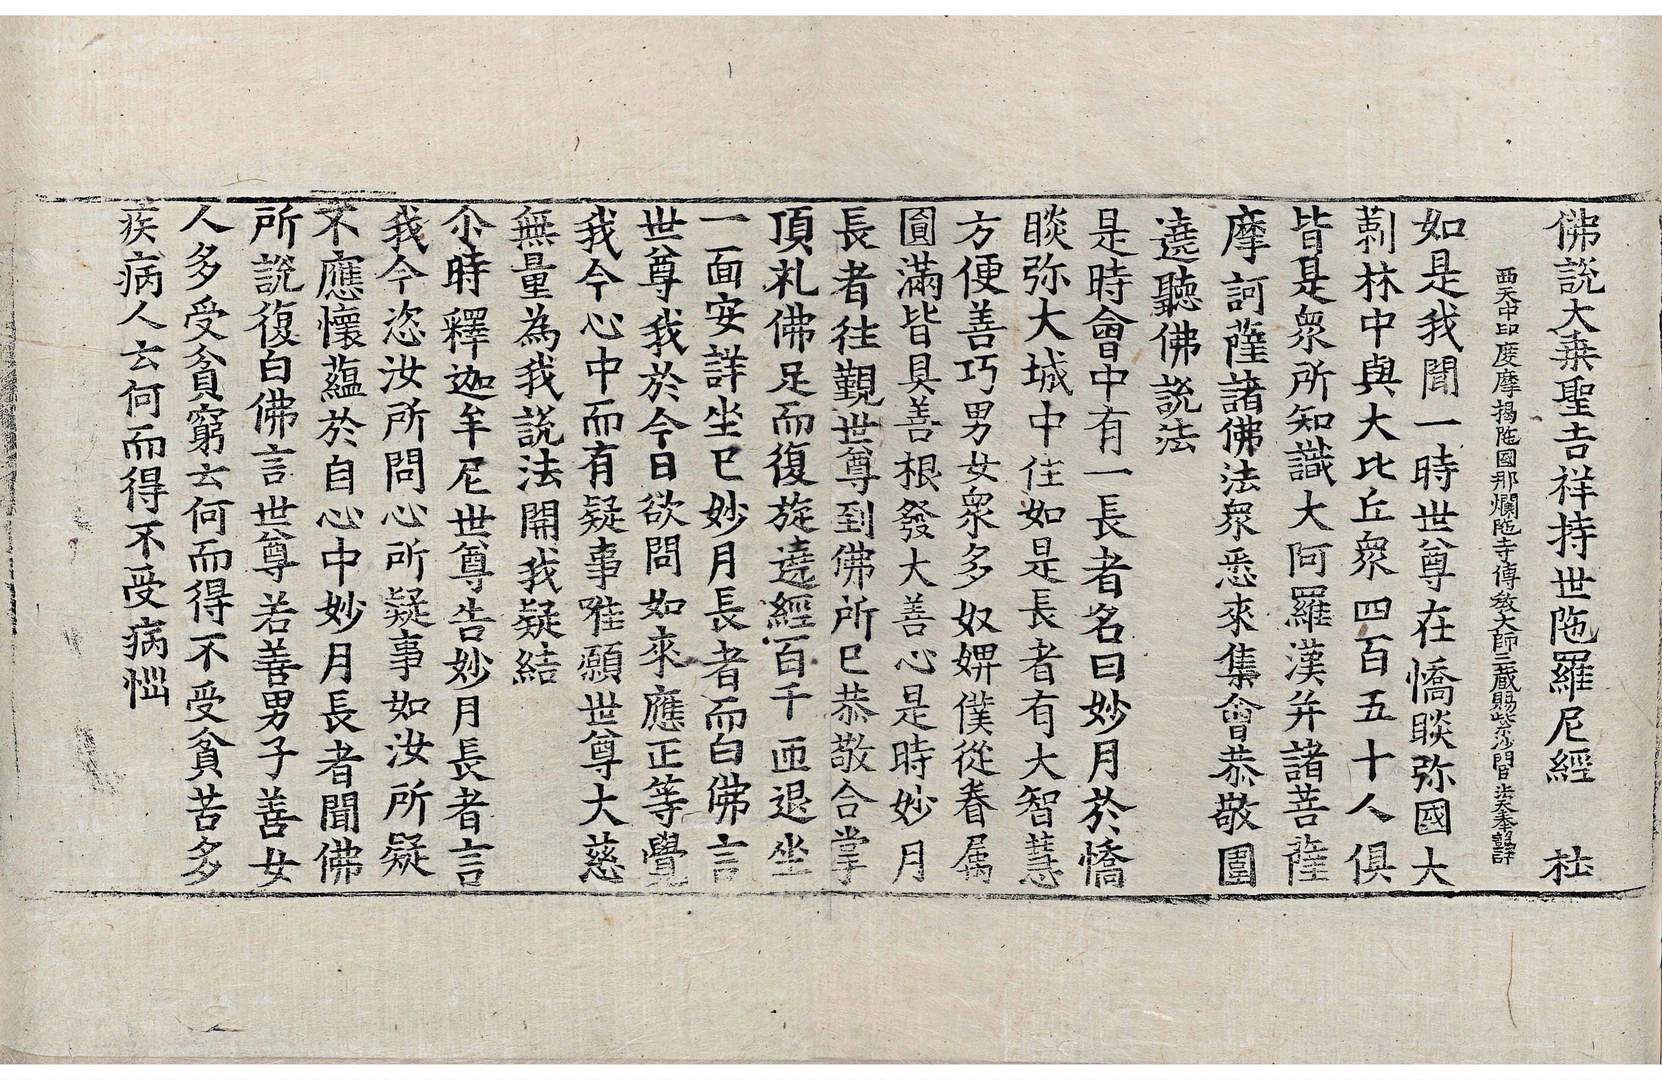 佛說大乗聖吉祥持世陁羅尼經　杜
西天中印度摩揭陁國那爛陁寺傳教大師三藏賜紫沙門臣法天奉詔譯
如是我聞一時世尊在憍睒弥國大
剌林中與大比丘衆四百五十人俱
皆是衆所知識大阿羅漢并諸菩薩
摩訶薩諸佛法衆悉來集會恭敬圍
遶聽佛說法
是時會中有一長者名曰妙月於憍
睒弥大城中住如是長者有大智慧
方便善巧男女衆多奴婢僕從眷属
圓滿皆具善根發大善心是時妙月
長者往覲世尊到佛所已恭敬合掌
頂礼佛足而復旋遶經百千匝退坐
一面安詳坐已妙月長者而白佛言
世尊我於今日欲問如來應正等覺
我今心中而有疑事唯願世尊大慈
無量為我說法開我疑結
尒時釋迦牟尼世尊告妙月長者言
我今恣汝所問心所疑事如汝所疑
不應懷蘊於自心中妙月長者聞佛
所說復白佛言世尊若善男子善女
人多受貧窮云何而得不受貧苦多
疾病人云何而得不受病惱